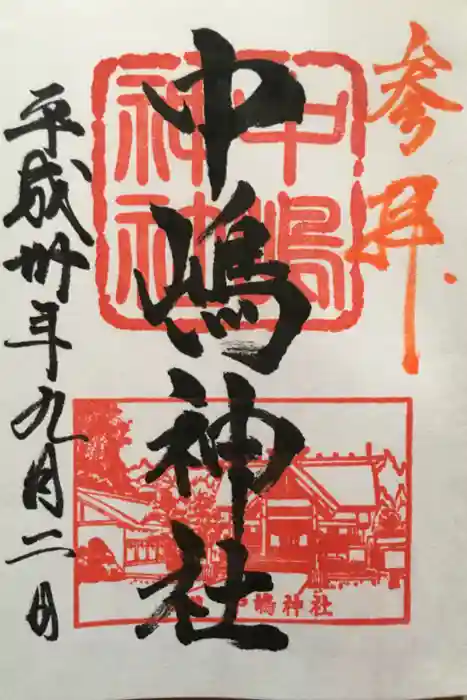 参拝
中嶋神社
中嶋神社
平成卅年九月二日
中嶋神社